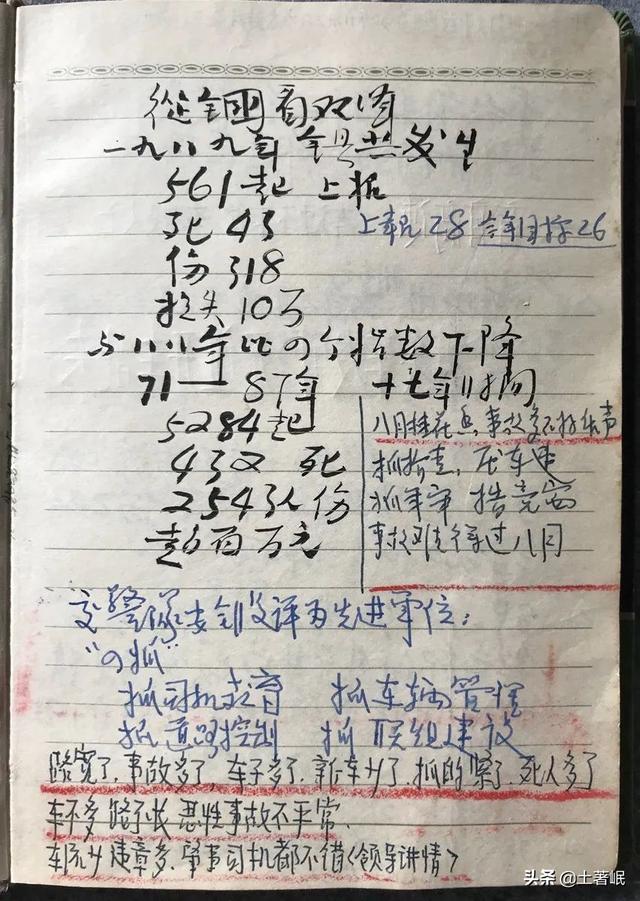 從全國看双塔
一九八九年全县共发生
561起 上报
死43 上年28 当年目标26
伤318
损失10万
与八八年比四个指数下降
71——87年 十七年间
5284起
432 死
2543人伤
八月桂花香,事故多
抓检查,压车速
抓年审 措完窝
事故难得过八月
交警队安全被评为先进单位:
"四抓"
抓司机教育 抓车辆管理
抓道路控制 抓联组建设
路宽了,事故多了,车子多了,新车少了,抓的紧了,死人多了
车不多路不长 恶性事故不平常
车况少 违章多,肇事司机都不错<领导讲情>
头条@土著岷